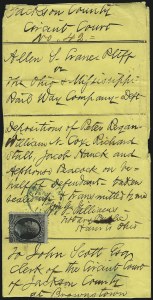 Jackson County
Circuit Court
No 42
Allen S. Crane Plttf
vs
The Ohio & Mississippi
Rail Way Company Deft
Depositions of Peter Regan
William N. Cox Richard
Stall, Jacob Hauck and
Alphonso Peacock on be-
half of Defendant taken
sealed up & transmitted by me
Notary Public
To John Scott Esq
Clerk of the Circuit Court
of Jackson County
at Brownstown